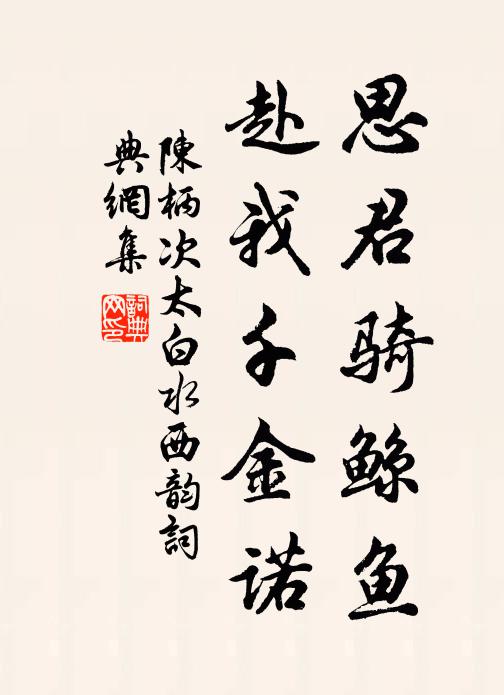 思君骑鲸鱼
赴我千金诺
陳柄次太白水西韵詞
典網集
詞典
网印